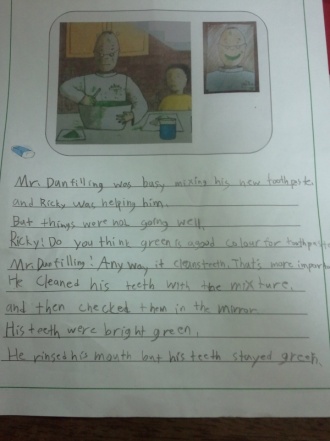 Mr. Danfilling was busy mixing his new toothpaste.
and Ricky was helping him.
But things were not going well.
Ricky! Do you think green is a good colour for toothpaste
Mr. Danfilling! Any way it cleans teeth. That's more importa
He cleaned his teeth with the mixture.
and then checked them in the mirror
His teeth were bright green.
He rinsed his mouth but his teeth stayed green.